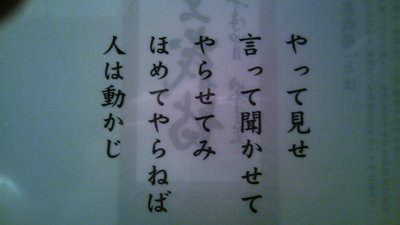 やって見せ
言って聞かせて
やらせてみ
ほめてやらねば
人は動かじ